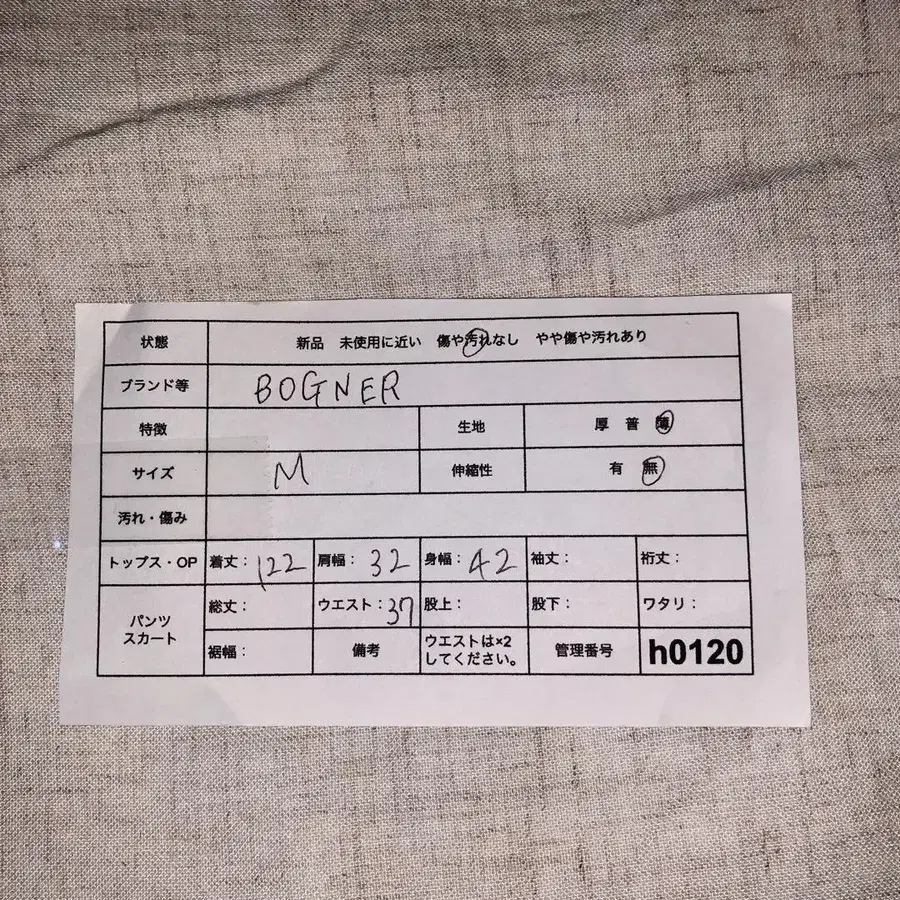 状態 新品 未使用に近い 傷や汚れなし やや傷や汚れあり
ブランド等 BOGNER
特徴 生地 厚 普 薄
サイズ M 伸縮性 有 無
汚れ・傷み
トップス・OP 着丈: 122 肩幅: 32 身幅: 42 袖丈: 裄丈:
パンツ スカート 総丈: ウエスト: 37 股上: 股下: ワタリ:
裾幅: 備考 ウエストは×2 してください。 管理番号 h0120